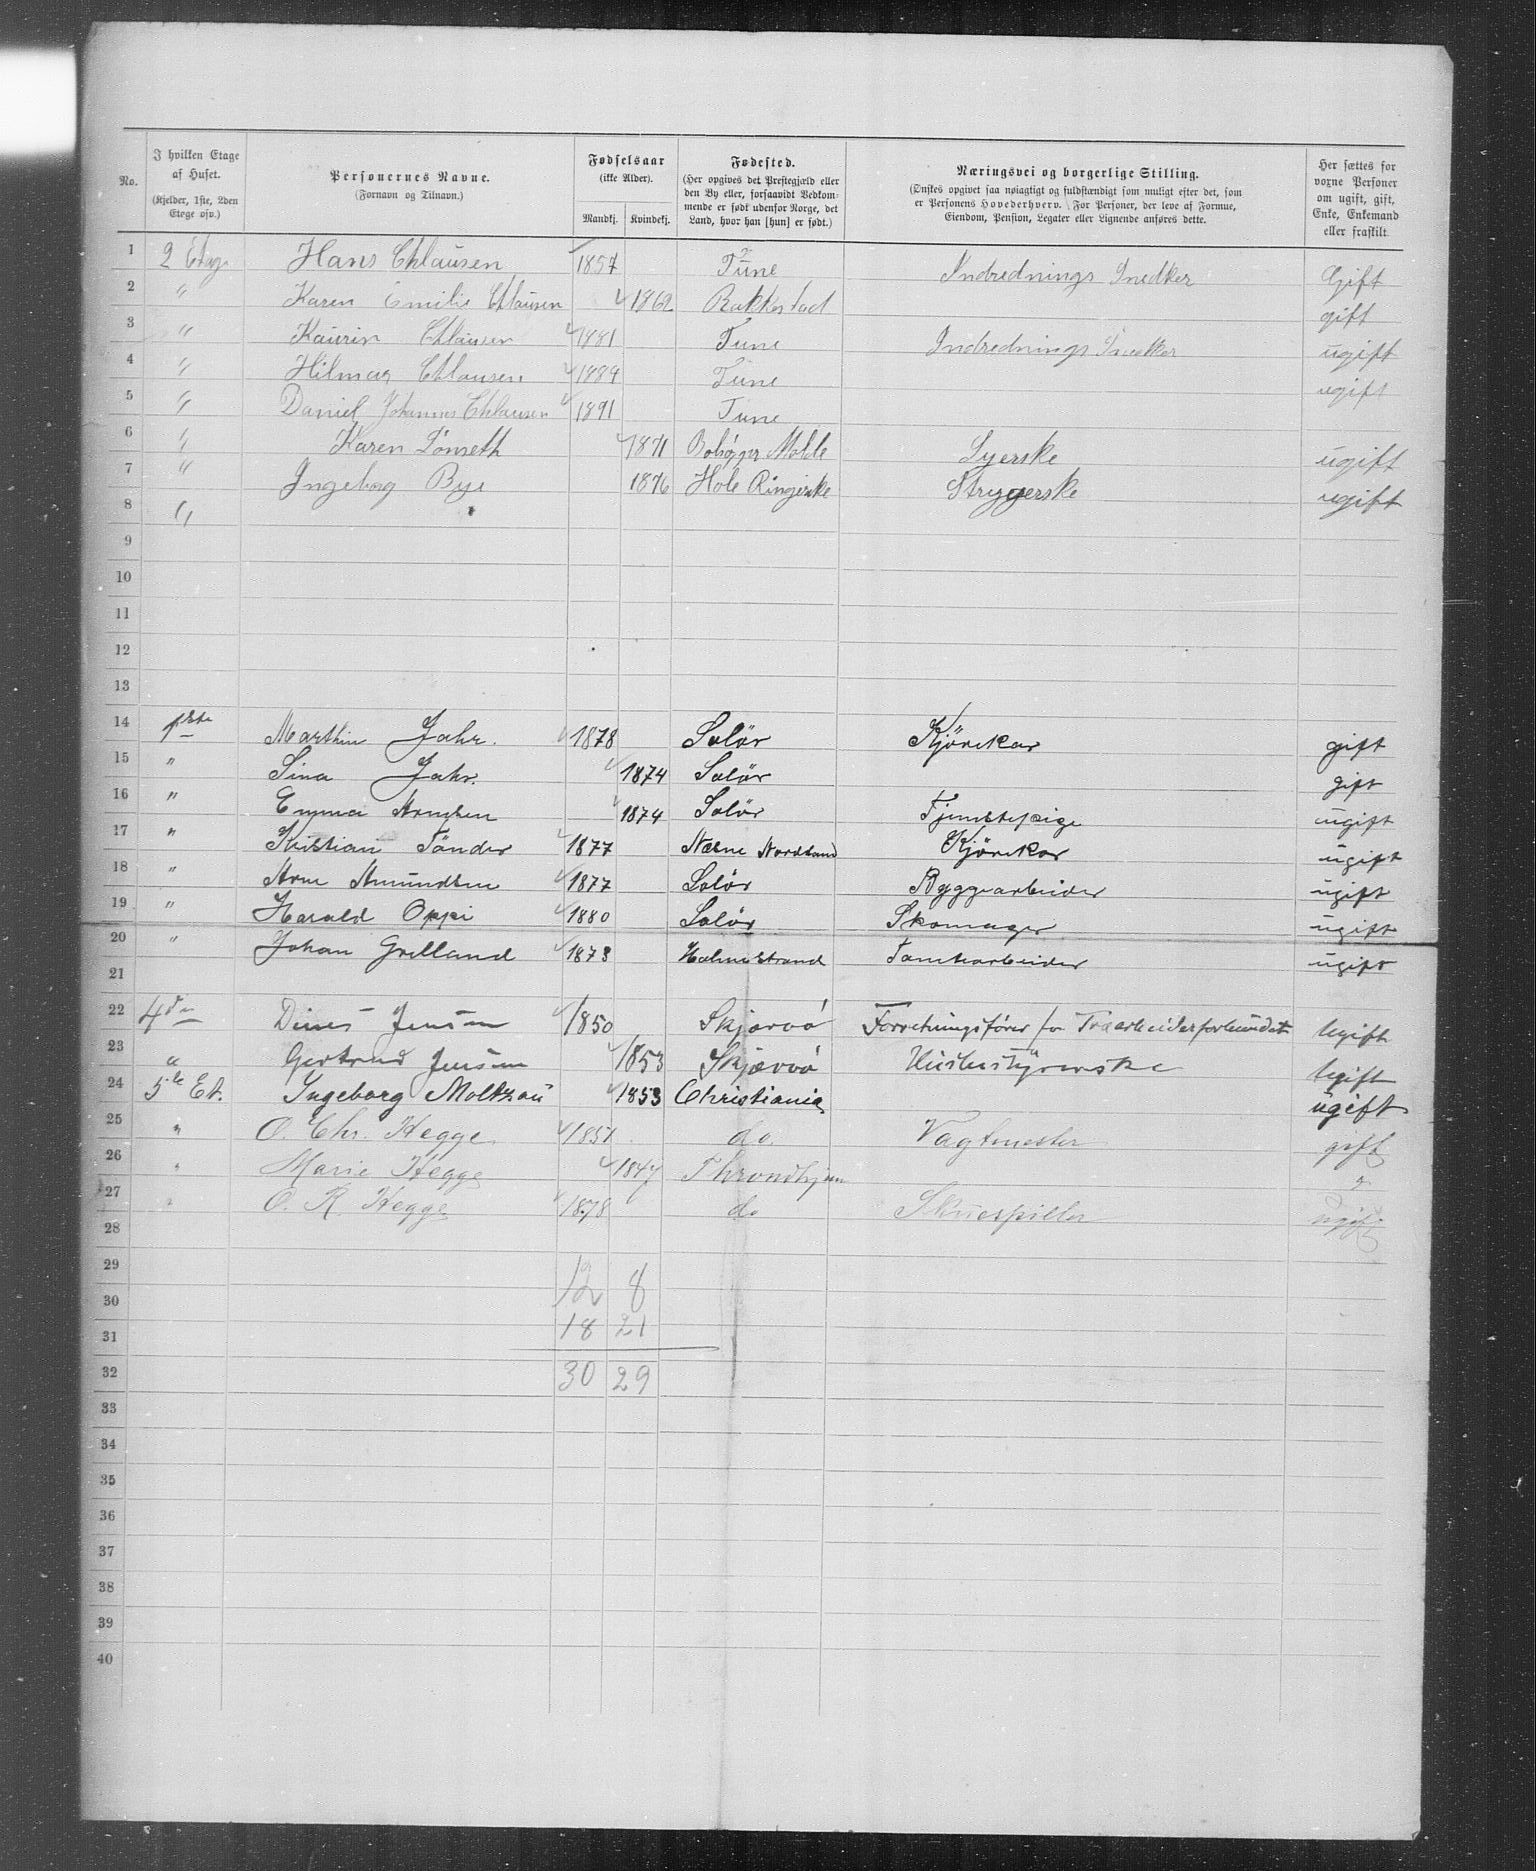 No. | I hvilken Etage af Huset. (Kjelder, 1ste, 2den Etage osv.) | Personernes Navne. (Fornavn og Tilnavn.) | Fødselsaar (ikke Alder). Mandkj. Kvindekj. | Fødested. (Her opgives det Prestegjæld eller den By eller, forsaavidt Vedkommende er født udenfor Norge, det Land, hvor han [hun] er født.) | Næringsvei og borgerlige Stilling. (Ønskes opgivet saa nøiagtigt og fuldstændigt som muligt efter det, som er Personens Hovederhverv. For Personer, der leve af Formue, Eiendom, Pension, Legater eller Lignende anføres dette. | Her sættes for voxne Personer om ugift, gift, Enke, Enkemand eller fraskilt.
1 2 Etage Hans Chlausen 1857 Tune Indrednings Snedker Gift
2 " Karen Emilie Chlausen 1862 Rakkestad gift
3 " Kaurin Chlausen 1881 Tune Indrednings Snedker ugift
4 " Hilmar Chlausen 1889 Tune ugift
5 " Daniel Johannes Chlausen 1891 Tune
6 " Karen Tømseth 1871 Bolsø pr Molde Syerske ugift
7 " Ingeborg Bye 1876 Hole Ringerike Strygerske ugift
8 "
9
10
11
12
13
14 1ste Marthin Jahr. 1878 Solör Kjörekar gift
15 " Sina Jahr. 1874 Solör gift
16 " Emma 1874 Solör Tjenstepige ugift
17 " Kristian Tönder 1877 Næsne Nordland Kjörekar ugift
18 " Arne Amundsen 1877 Solör Byggearbeider ugift
19 " Harald Oppi 1880 Solör Skomager ugift
20 " Johan Grelland 1873 Holmestrand Tomtearbeider ugift
21
22 4de Dines Jensen 1850 Skjærvö Forretningsförer for Træarbeiderforbundet gift
23 " Gertrud Jensen 1853 Skjærvö Husbestyrerske gift
24 5te Et. Ingeborg Moltzau 1853 Christiania ugift
25 " O. Chr. Hegge 1851 do. Vagtmester gift
26 " Marie Hegge 1847 Throndhjem "
27 " O. R. Hegge 1878 do Skuespiller ugift
28
29 12 8
30
31 18 21
32 30 29
33
34
35
36
37
38
39
40